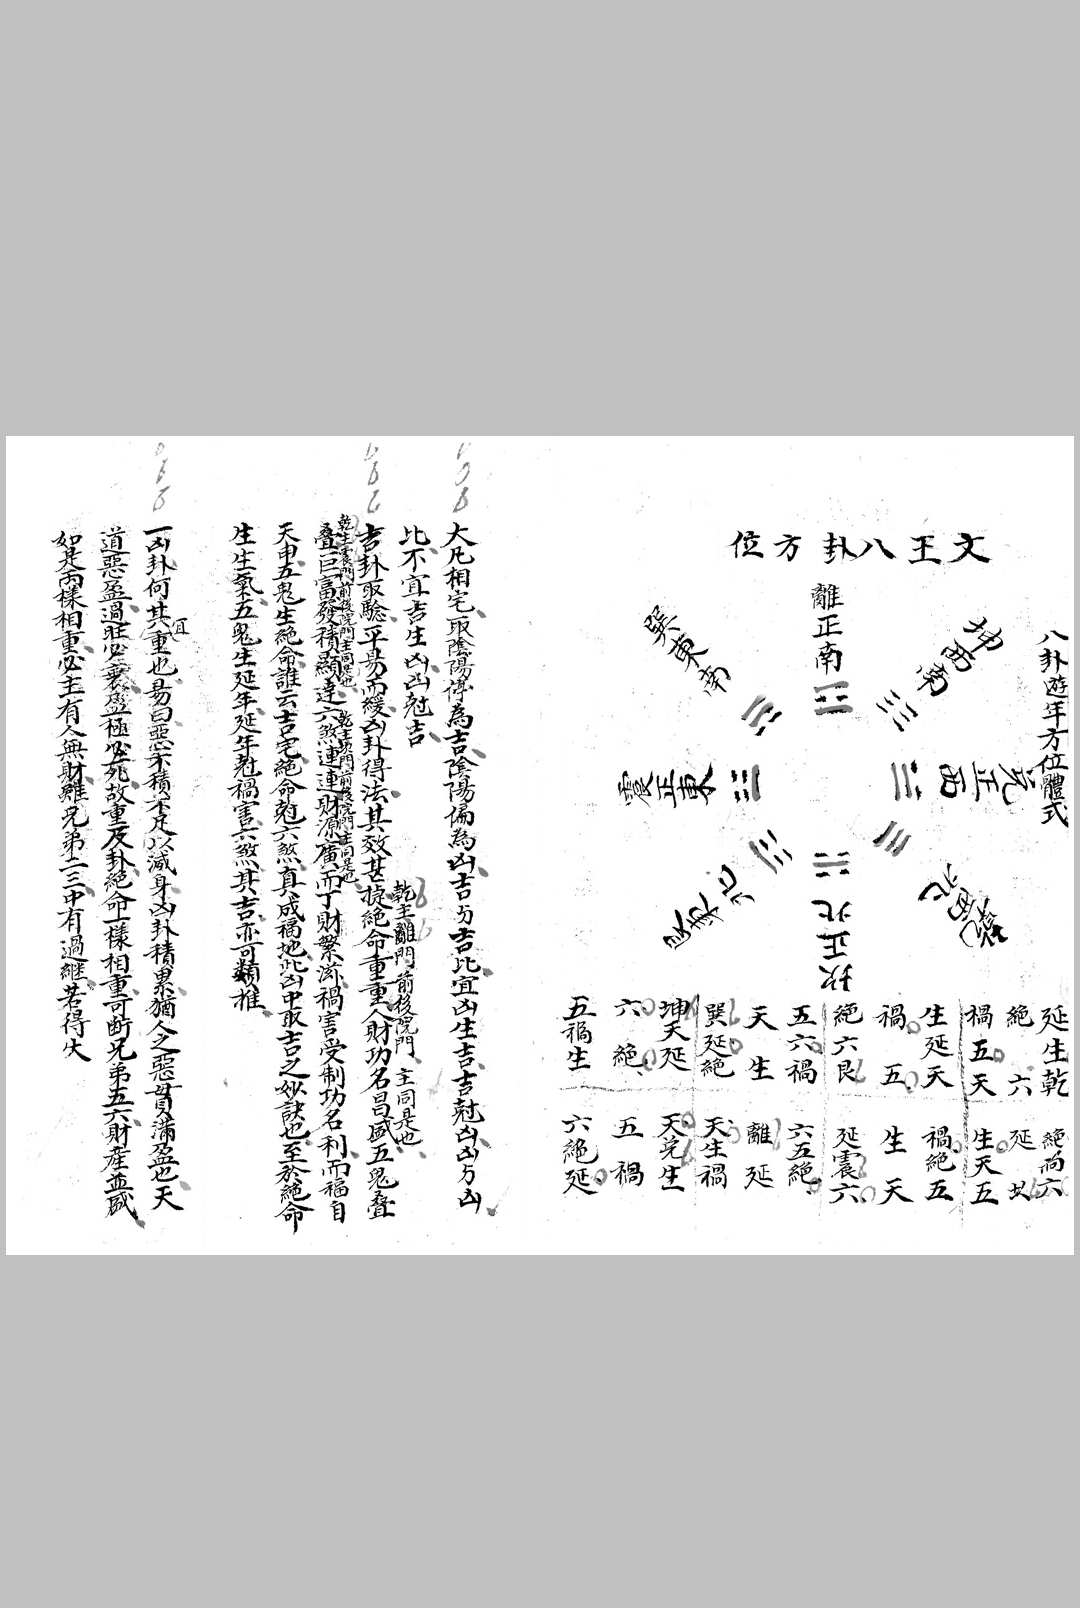 文王八卦方位
離正南
坤西南
兌正西
乾西北
坎正北
艮東北
震正東
巽東南
八卦遊年方位體式
延生乾 絕尚六
絕 六 延
禍五天 生天五
生延天 禍絕五
禍 五 生 天
絕六艮 延震六
五六禍 六五絕
天 生 離 延
巽延絕 天生禍
坤天延 天兌生
六 絕 五 禍
五禍生 六絕延
大凡相宅取陰陽停為吉陰陽偏為凶吉与吉比宜凶生吉吉尅凶凶与凶
比不宜吉生凶凶尅吉
乾主離門前後院門主同是也
吉卦取驗平易而緩凶卦得法其效甚捷絕命重重人財功名昌盛五鬼叠
乾主震門前後院門主同是也 乾主坎門前後院門主同是也
叠巨富發積顯達六煞連連財源廣而丁財繁滋禍害受制功名利而福自
天申五鬼生絕命誰云吉宅絕命尅六煞真成福地此凶中取吉之妙訣也至於絕命
生生氣五鬼生延年延年尅禍害六煞其吉亦可類推
一凶卦何其宜重也易曰惡不積不足以滅身凶卦積累猶人之惡貫滿盈也天
道惡盈過旺必衰盈極必死故重及卦絕命一樣相重可断兄弟五六財産並盛
如是両樣相重必主有人無財雖兄弟二三中有過継若得失